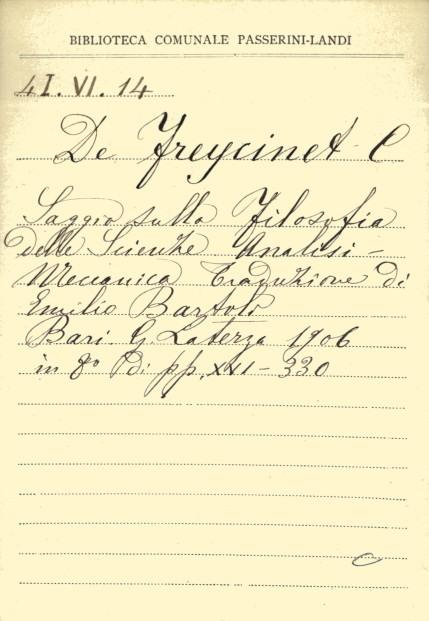 BIBLIOTECA COMUNALE PASSERINI-LANDI
4I. VI. 14
De Freycinet C
Saggio sulla Filosofia
delle Scienze Analisi -
Meccanica Traduzione di
Emilio Bartoli
Bari G. Laterza 1906
in 8º di pp. XXI - 330